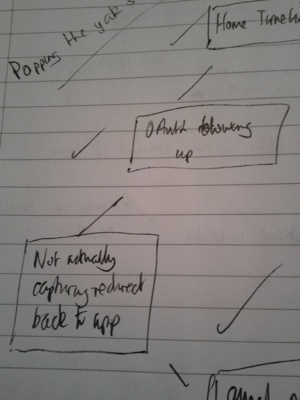 Popping the yak s
Home Timeline
OAuth blowing
up
Not actually
capturing redirect
back to app